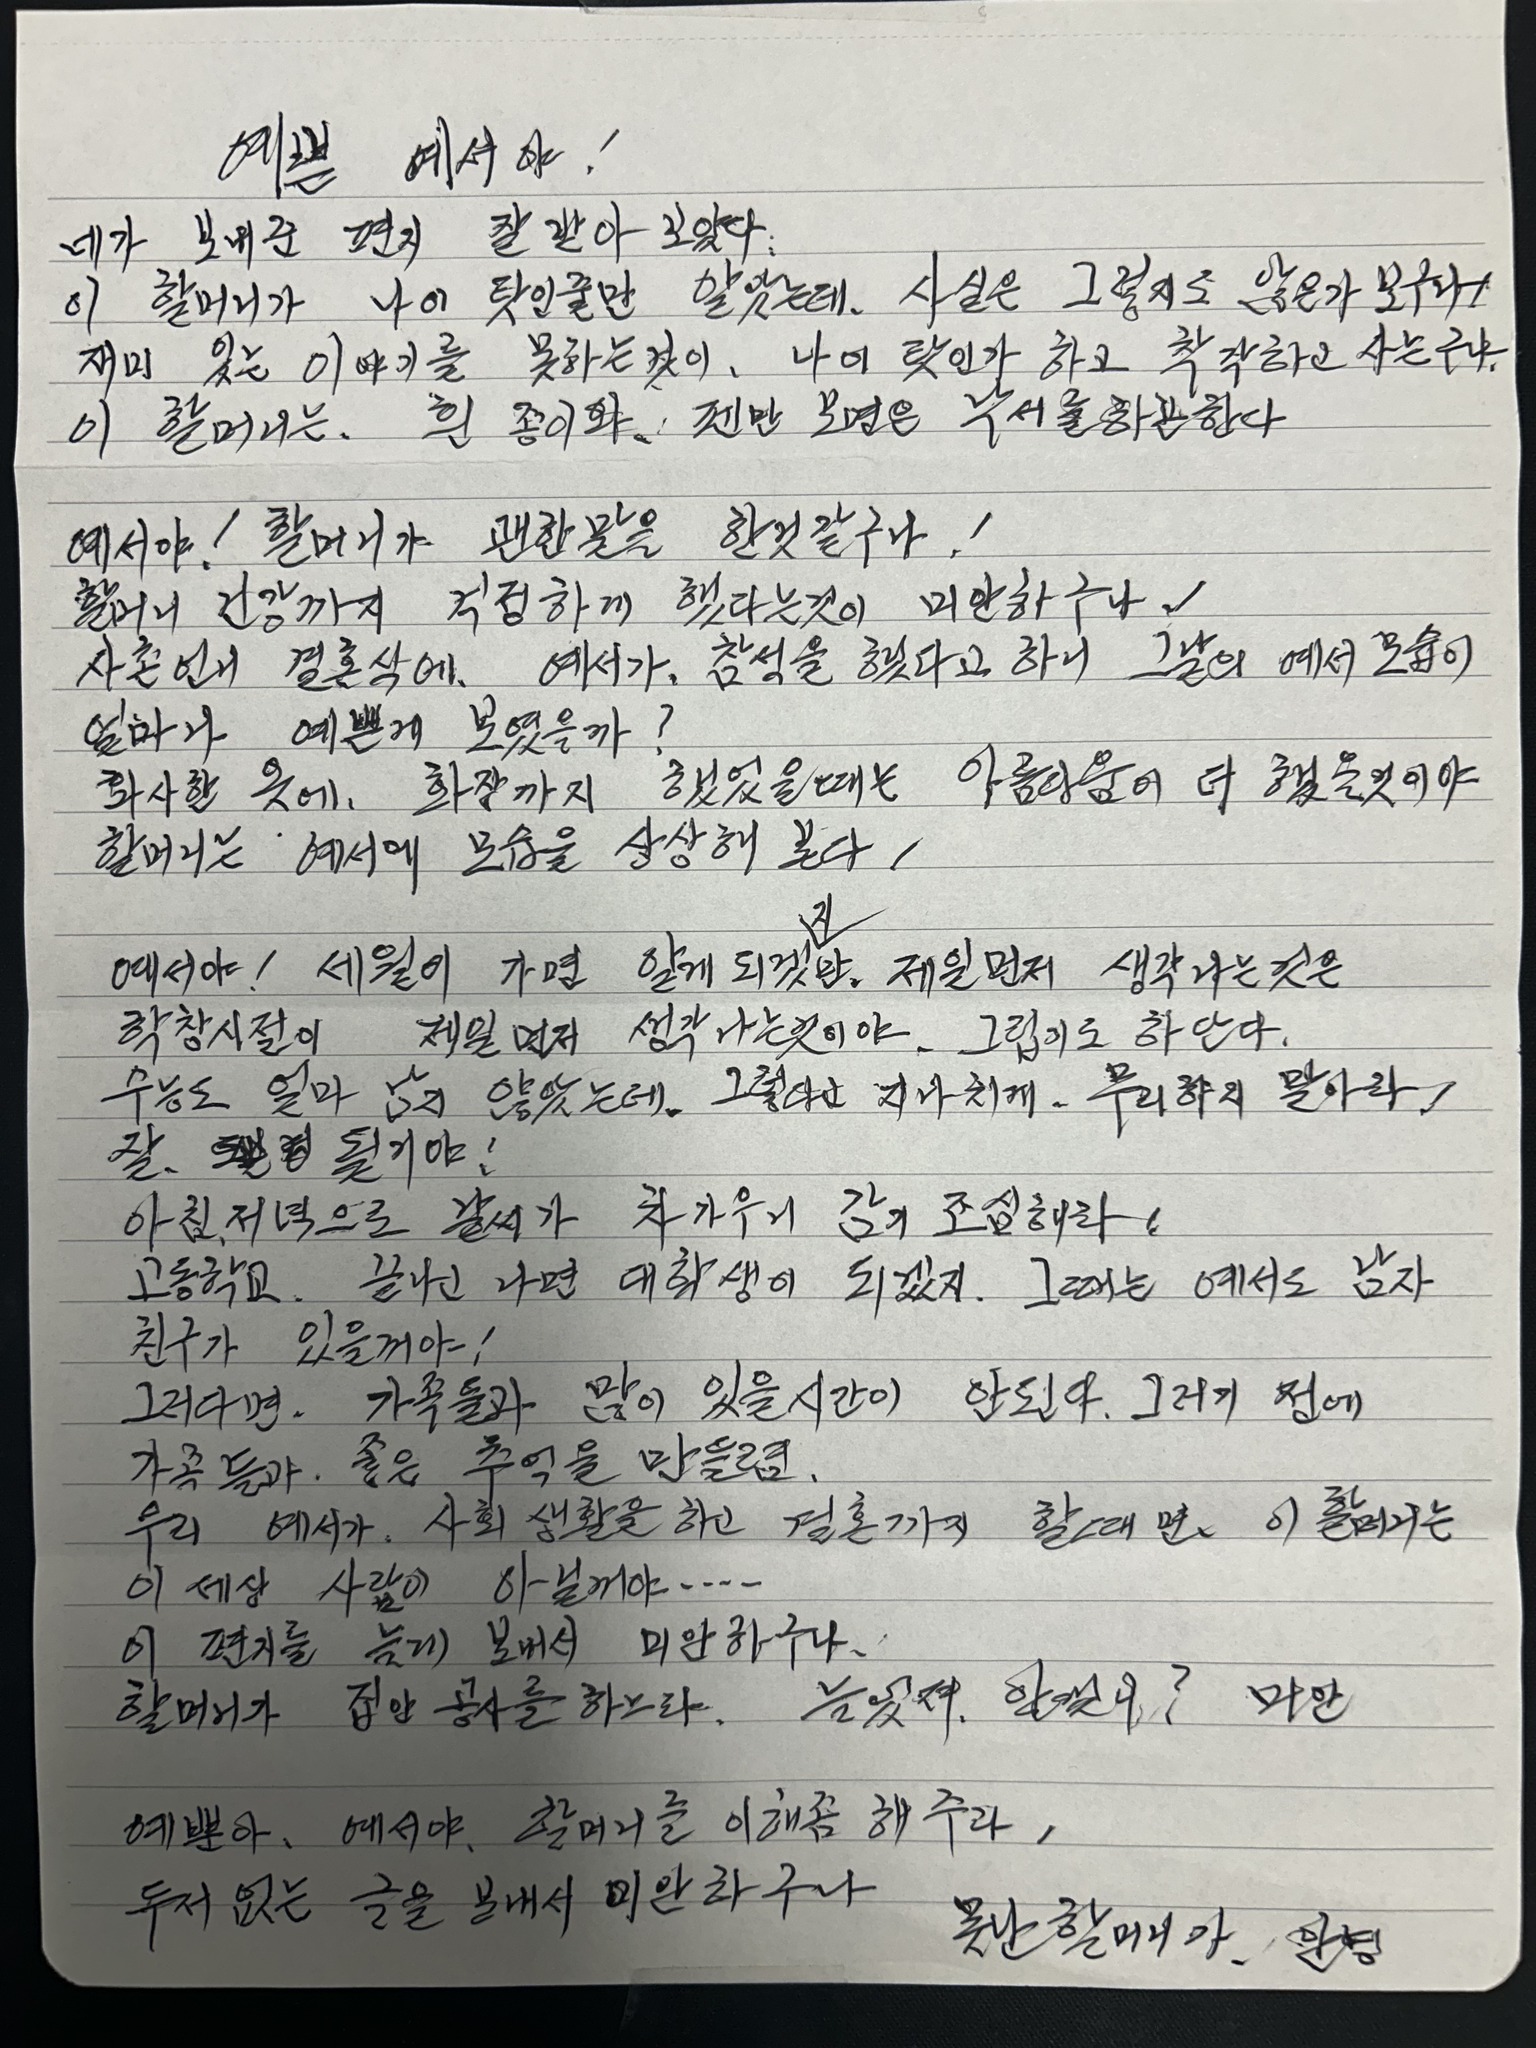 예쁜 예서야!
네가 보내준 편지 잘 받아 보았다.
이 할머니가 나이 탓인줄만 알았는데. 사실은 그렇지도 않은가 보구나!
재미 있는 이야기를 못하는것이. 나이 탓인가 하고 착각하고 사는구나.
이 할머니는. 흰 종이와. 펜만 보면은 낙서를하곤한다
예서야! 할머니가 괜한말을 한것같구나!
할머니 건강까지 걱정하게 했다는것이 미안하구나!
사촌언니 결혼식에. 예서가. 참석을 했다고 하니 그날의 예서모습이
얼마나 예쁜게 보였을까?
화사한 옷에. 화장까지 했었을때는 아름다움이 더 했을것이야
할머니는 예서에 모습을 상상해 본다!
예서야! 세월이 가면 알게되겠지만. 제일먼저 생각나는것은
학창시절이 제일먼저 생각나는것이야. 그립기도 하단다.
수능도 얼마 남지 않았는데. 그렇다고 지나치게. 무리하지 말아라!
잘. 될거야!
아침.저녁으로 날씨가 차가우니 감기 조심해라!
고등학교. 끝나고 나면 대학생이 되겠지. 그때는 예서도 남자
친구가 있을꺼야!
그러다면. 가족들과 많이 있을시간이 안된다. 그러기 전에
가족들과. 좋은 추억을 만들렴.
우리 예서가. 사회생활을하고 결혼까지 할때면. 이할머니는
이세상 사람이 아닐꺼야----
이 편지를 늦게 보내서 미안하구나.
할머니가 집안 공사를하느라. 늦었져. 미안
예쁜아. 예서야. 할머니를 이해좀 해주라!
두서없는 글을 보내서 미안하구나
못난할머니가. 안녕